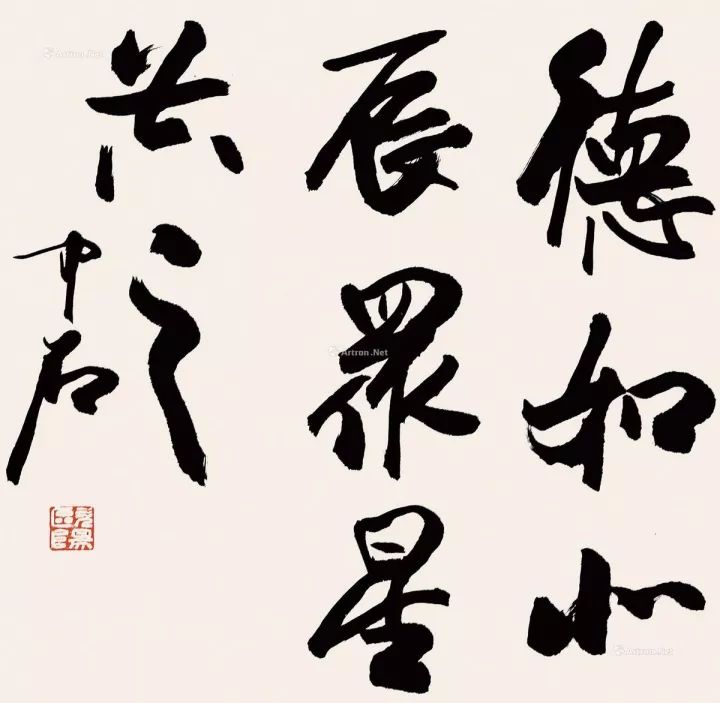 德如北
辰眾星
共之
中石
Artron.Net
Artron.Net
Artron.Net